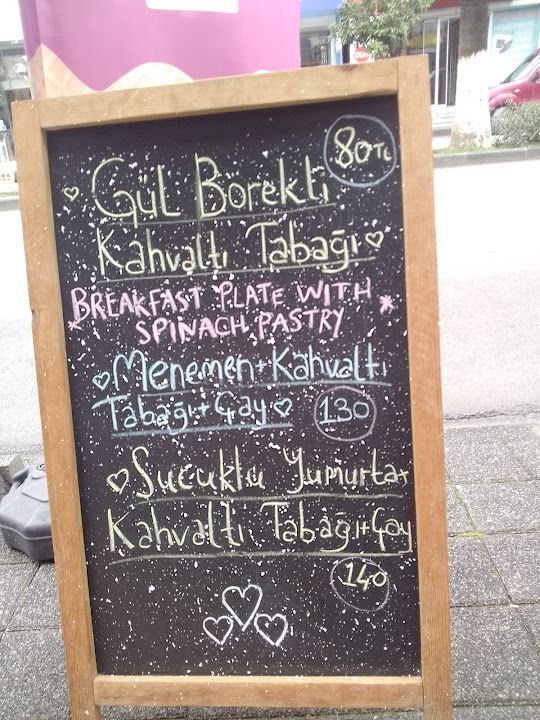 80TL
Gül Börekli
Kahvaltı Tabağı
BREAKFAST PLATE WITH
SPINACH PASTRY
Menemen+Kahvaltı
Tabağı+Çay
130
Sucuklu Yumurta+
Kahvaltı Tabağı+Çay
140